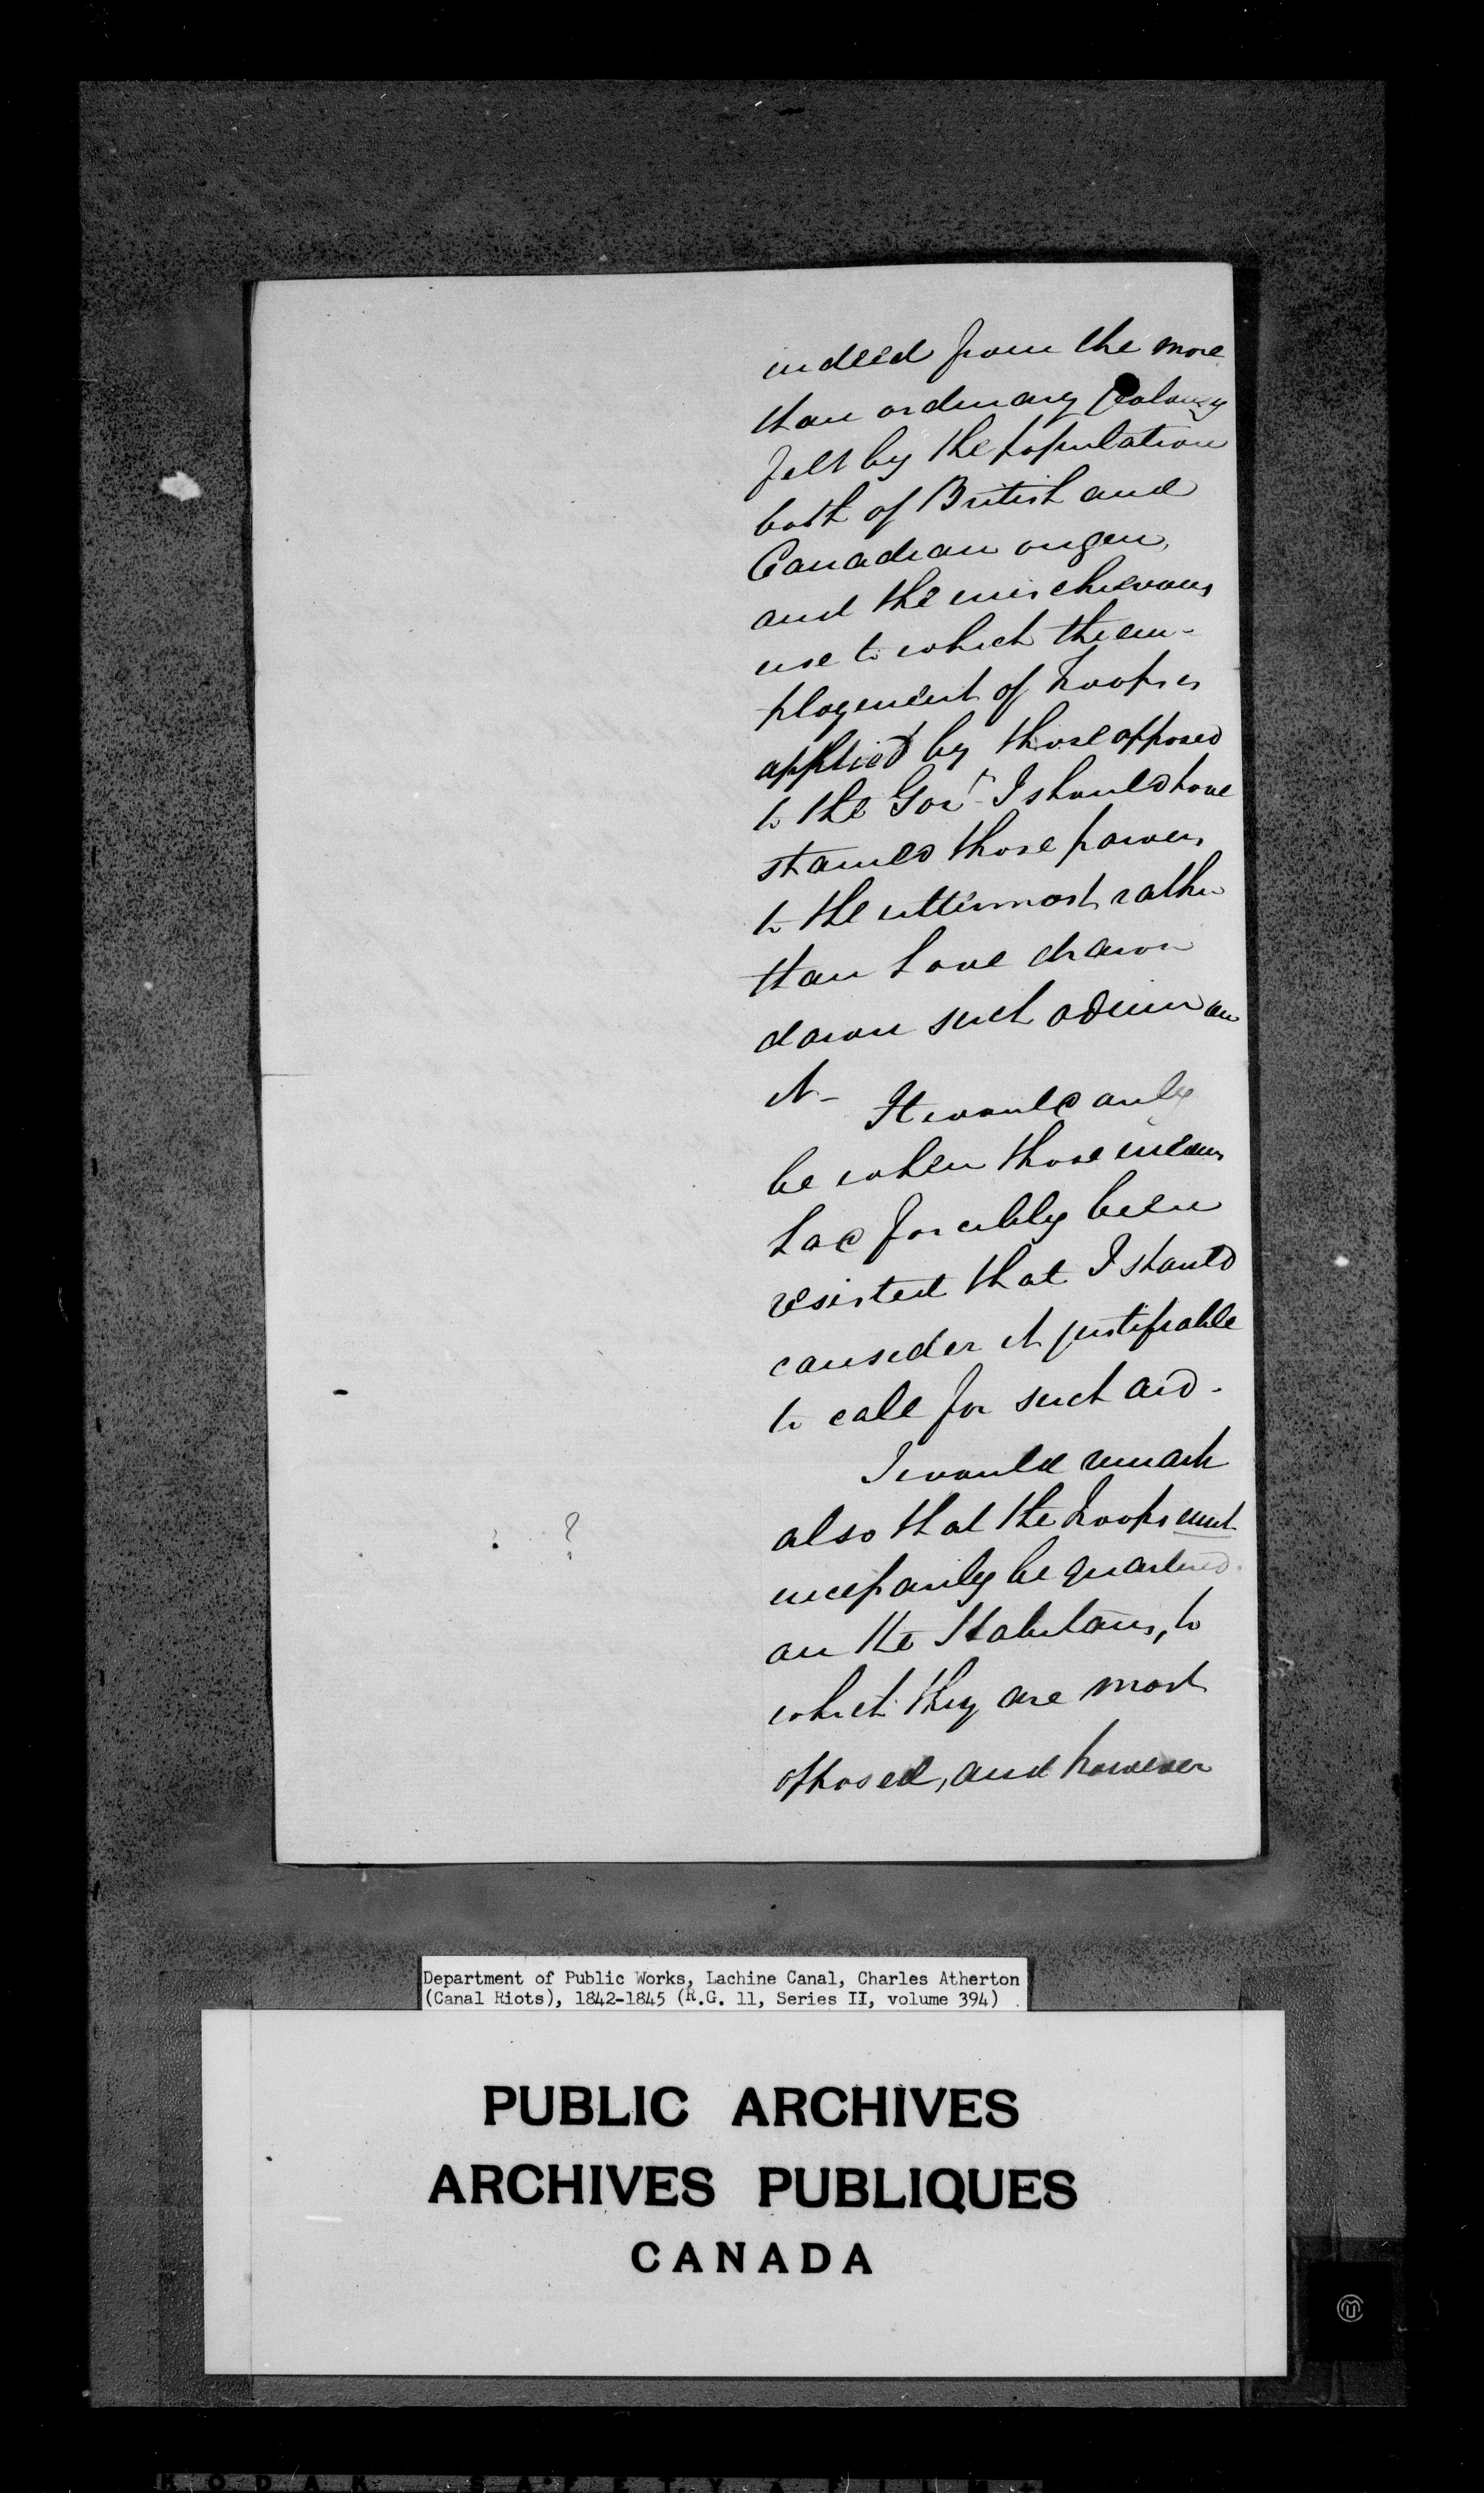 indeed from the more
than ordinary jealousy
felt by the population
both of British and
Canadian origen,
and the mischievous
use to which the em-
ployement of troops is
applied by those opposed
to the Govt - I should have
strained those powers
to the uttermost rather
than have drawn
down such odium on
it - It would only
be when those means
had forcibly been
resisted that I should
consider it justifiable
to call for such aid -
I would remark
also that the troops must
necessarily be quartered
on the Habitans, to
which they are most
opposed, and however
? ?
Department of Public Works, Lachine Canal, Charles Atherton
(Canal Riots), 1842-1845 (R.G. 11, Series II, volume 394)
PUBLIC ARCHIVES
ARCHIVES PUBLIQUES
CANADA
KODAK SAFETY FILM